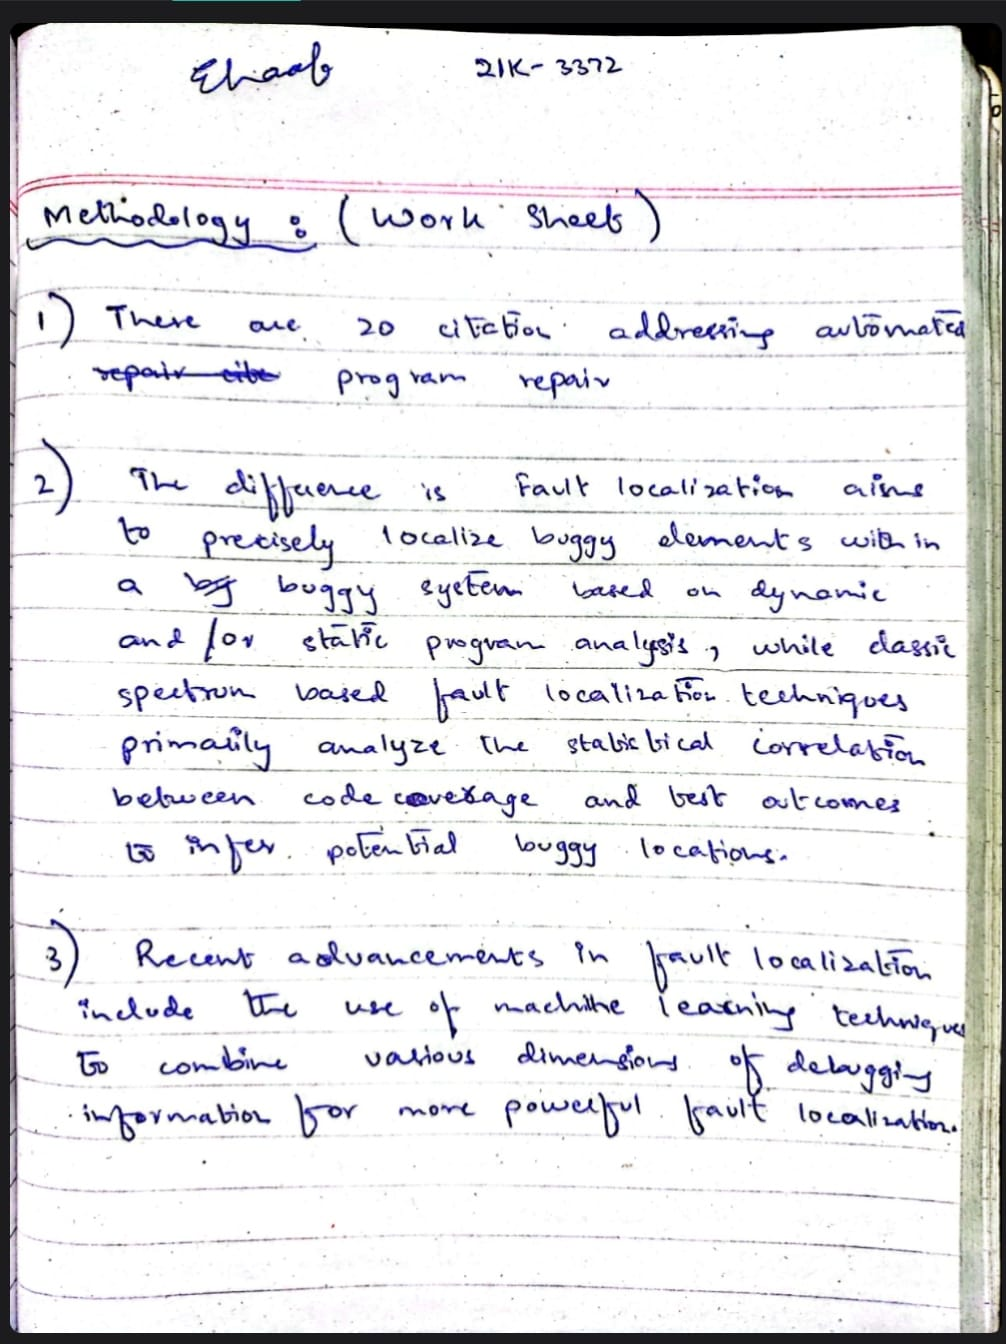 Ehaab 21K-3372
Methodology : (Work Sheet)
1) There are 20 citation addressing automated
repair cite program repair
2) The difference is Fault localization aims
to precisely localize buggy elements within
a bg buggy system based on dynamic
and/or static program analysis, while classic
spectrum based fault localization techniques
primarily analyze the statistical correlation
between code coverage and test outcomes
to infer potential buggy locations.
3) Recent advancements in fault localization
include the use of machine learning techniques
to combine various dimensions of debugging
information for more powerful fault localization.